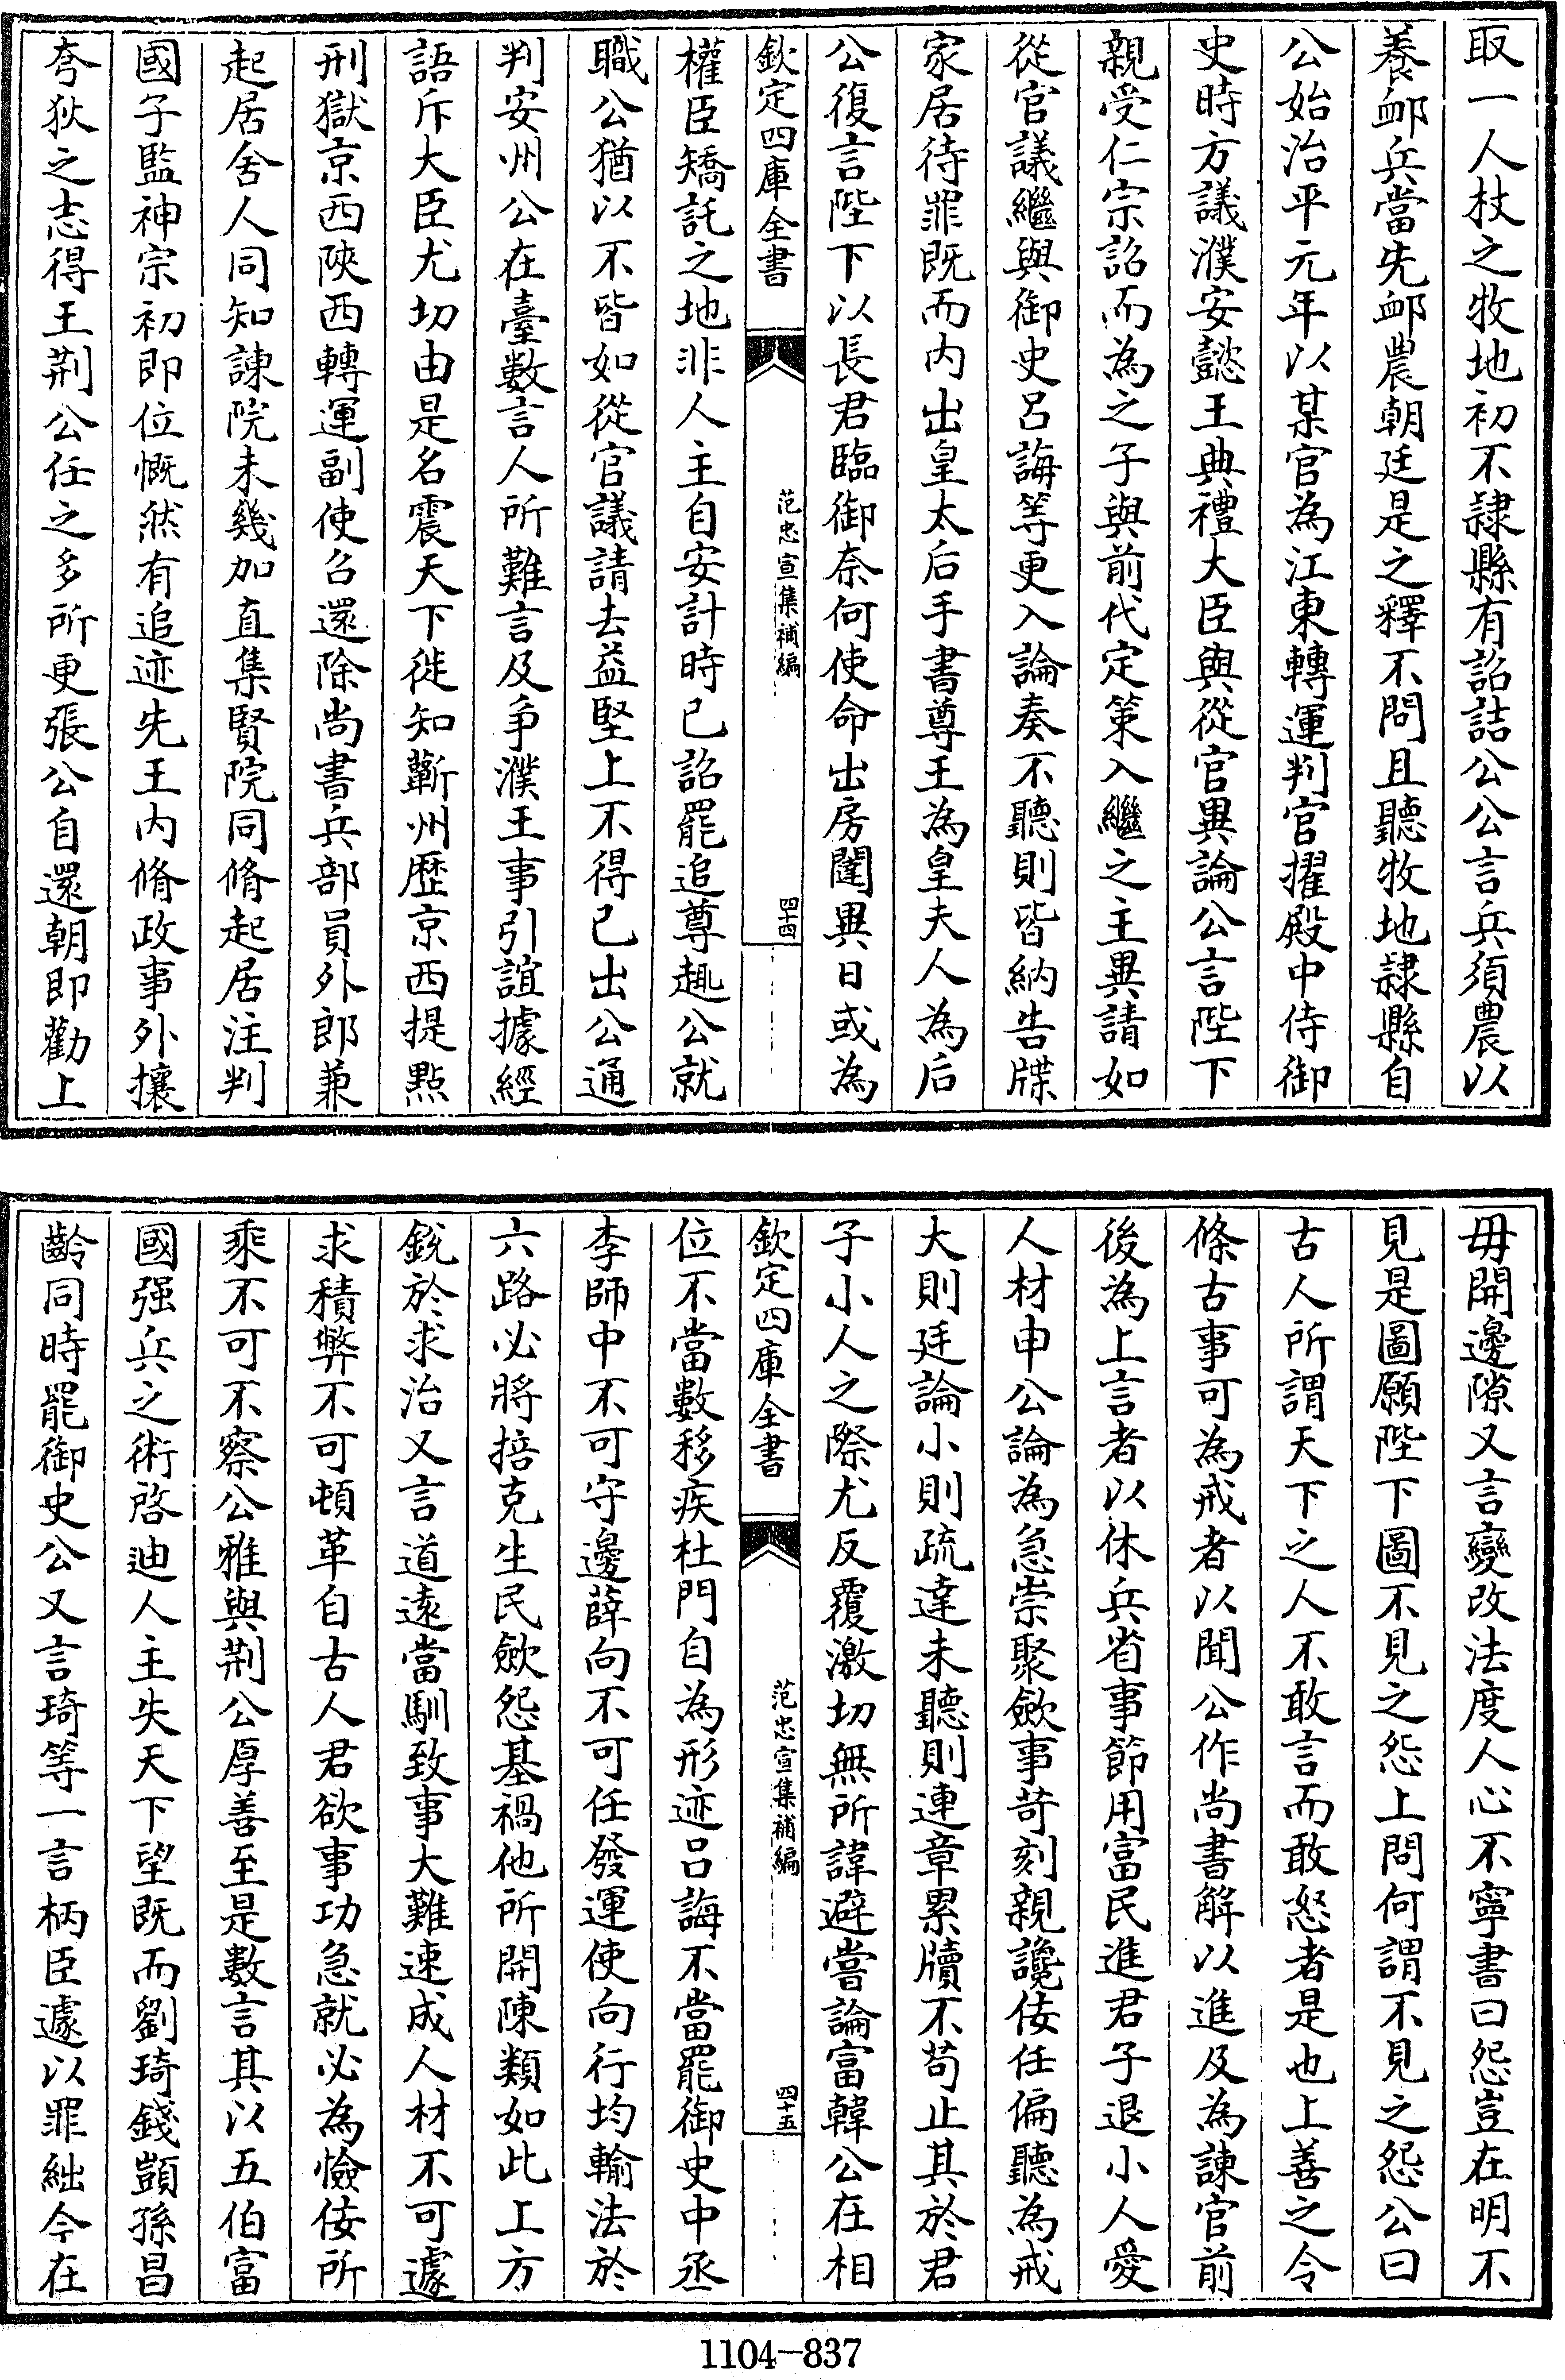 取一人杖之牧地初不隷縣有詔詰公公言兵須農以
養䘏兵當先䘏農朝廷是之釋不問且聽牧地隷縣自
公始治平元年以某官為江東轉運判官擢殿中侍御
史時方議濮安懿王典禮大臣與從官異論公言陛下
親受仁宗詔而為之子與前代定策入繼之主異請如
從官議繼與御史呂誨等更入論奏不聽則皆納告牒
家居待罪既而内出皇太后手書尊王為皇夫人為后
公復言陛下以長君臨御奈何使命出房闥異日或為
欽定四庫全書
范忠宣集補編
四十四
權臣矯託之地非人主自安計時已詔罷追尊趣公就
職公猶以不皆如從官議請去益堅上不得已出公通
判安州公在臺數言人所難言及爭濮王事引誼據經
語斥大臣尤切由是名震天下徙知蘄州歴京西提點
刑獄京西陜西轉運副使召還除尚書兵部員外郎兼
起居舍人同知諫院未幾加直集賢院同脩起居注判
國子監神宗初即位慨然有追迹先王内脩政事外攘
夸狄之志得王荆公任之多所更張公自還朝即勸上
毋開邊隙又言變改法度人心不寧書曰怨豈在明不
見是圖願陛下圖不見之怨上問何謂不見之怨公曰
古人所謂天下之人不敢言而敢怒者是也上善之令
條古事可為戒者以聞公作尚書解以進及為諫官前
後為上言者以休兵省事節用富民進君子退小人愛
人材申公論為急崇聚歛事苛刻親讒佞任偏聽為戒
大則廷論小則疏達未聽則連章累牘不苟止其於君
子小人之際尤反覆激切無所諱避嘗論富韓公在相
欽定四庫全書
范忠宣集補編
四十五
位不當數移疾杜門自為形迹呂誨不當罷御史中丞
李師中不可守邊薛向不可任發運使向行均輸法於
六路必將掊克生民歛怨基禍他所開陳類如此上方
銳於求治又言道遠當馴致事大難速成人材不可遽
求積弊不可頓革自古人君欲事功急就必為憸佞所
乘不可不察公雅與荆公厚善至是數言其以五伯富
國强兵之術啓迪人主失天下望既而劉琦錢顗孫昌
齡同時罷御史公又言琦等一言柄臣遽以罪絀今在
1104-837